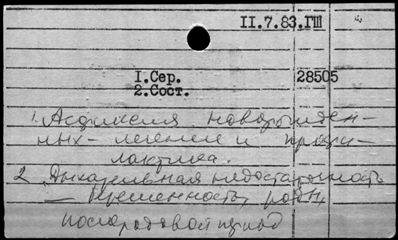 II.7.83.ГШ
1.Сер. 28505
2.Сост.
1. Асфиксия новорожден-
ных - лечение и профи-
лактика.
2. Дыхательная недостаточность
— Беременность, роды,
послеродовой период